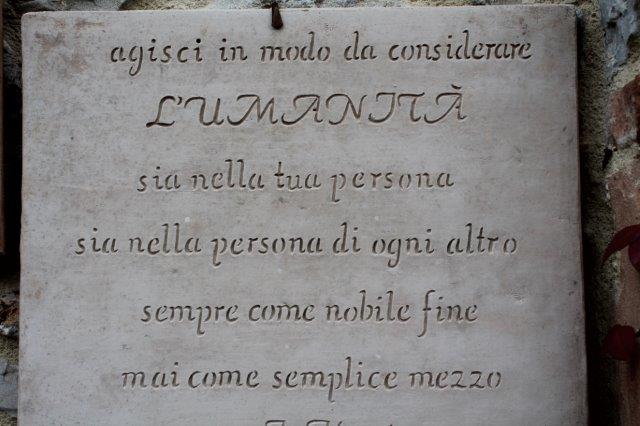 agisci in modo da considerare
L'UMANITÀ
sia nella tua persona
sia nella persona di ogni altro
sempre come nobile fine
mai come semplice mezzo